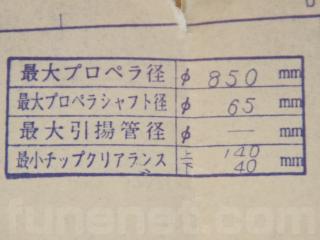 最大プロペラ径 φ 850 mm
最大プロペラシャフト径 φ 65 mm
最大引揚管径 φ — mm
最小チップクリアランス 上 140 下 40 mm
funenet.com